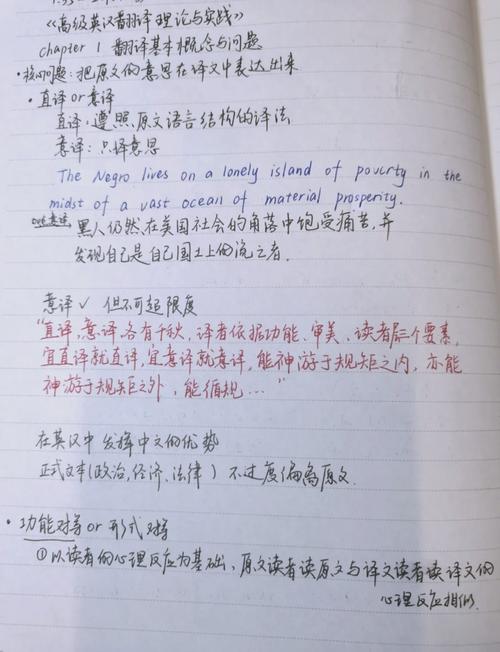 《高级英汉翻译理论与实践》
chapter 1 翻译基本概念与问题
· 核心问题:把原文的意思在译文中表达出来
· 直译 or 意译
直译:遵照原文语言结构的译法
意译:只译意思
The Negro lives on a lonely island of poverty in the
midst of a vast ocean of material prosperity.
黑人仍然在美国社会的角落中饱受痛苦,并
发现自己是自己国土上的流亡者.
意译✓ 但不可超限度
"直译,意译各有千秋,译者依据功能、审美、读者层三个要素,
宜直译就直译,宜意译就意译,能神游于规矩之内,亦能
神游于规矩之外,能循规..."
在英汉中发挥中文的优势
正式文本(政治,经济、法律) 不过度偏离原文.
· 功能对等 or 形式对等
①以读者的心理反应为基础、原文读者读原文与译文读者读译文的
心理反应相似.